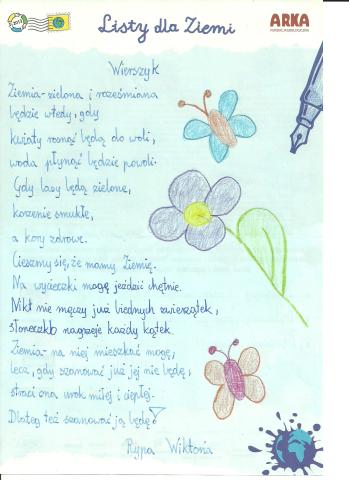 Listy dla Ziemi
ARKA
Wierszyk
Ziemia-zielona i roześmiana
będzie wtedy, gdy
kwiaty rosnąć będą do woli,
woda płynąć będzie powoli.
Gdy lasy będą zielone,
korzenie smukłe,
a kory zdrowe.
Cieszmy się, że mamy Ziemię.
Na wycieczki mogę jeździć chętnie.
Nikt nie męczy już biednych zwierzątek,
słoneczko nagrzeje każdy kątek.
Ziemia- na niej mieszkać mogę,
lecz, gdy szanować już jej nie będę,
straci ona urok miłej i ciepłej.
Dlateg też szanować ją będę!
Rypa Wiktoria